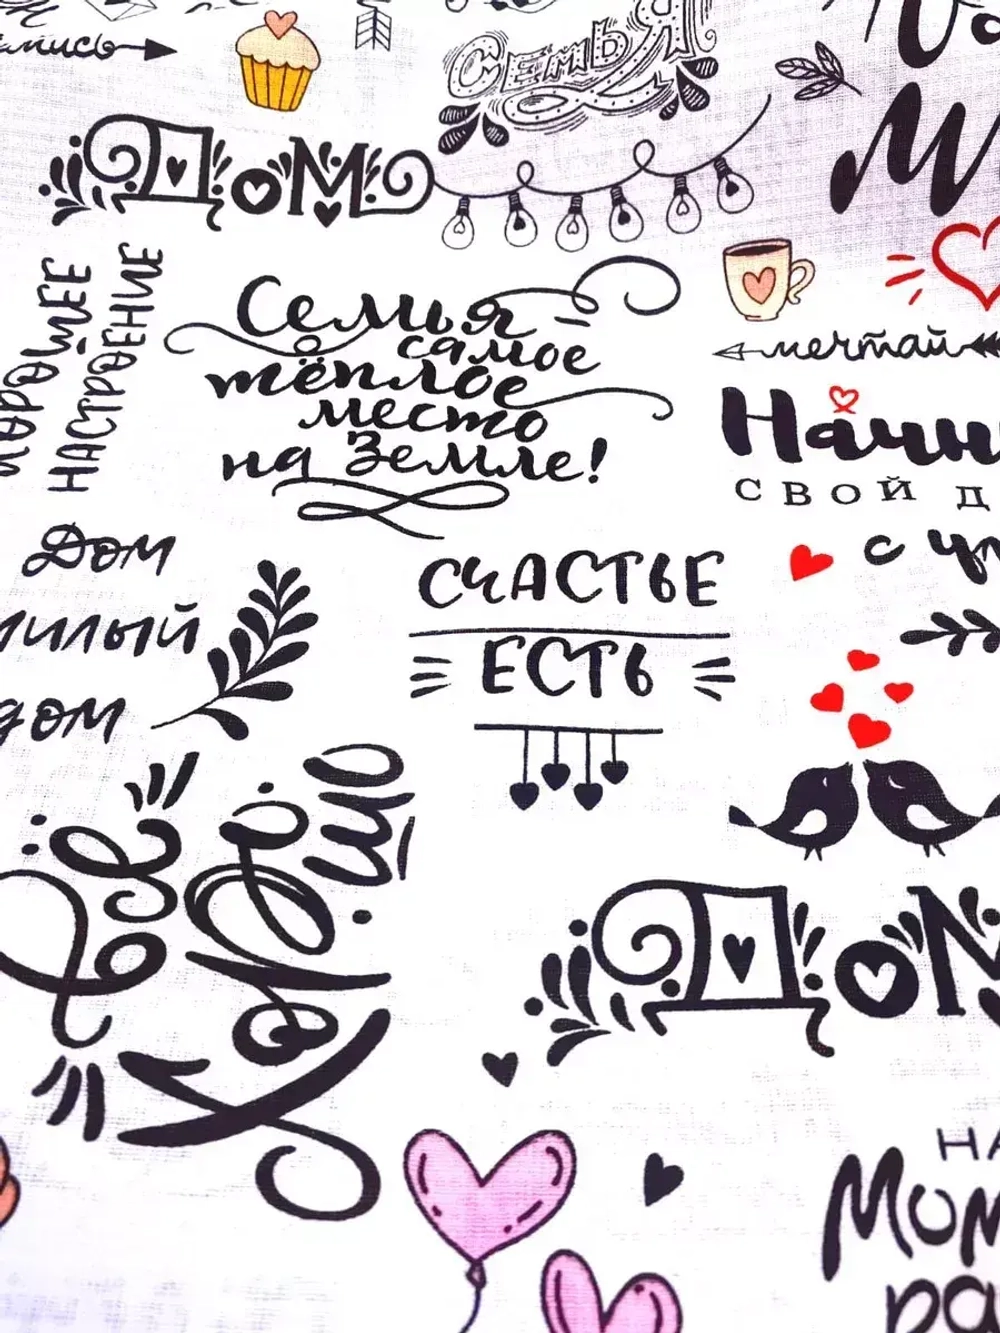 Семья
Дом
Хорошее
настроение
Семья –
самое
тёплое
место
на Земле!
мечтай
Начни
свой д
с
Дом
милый
дом
Счастье
есть
Всё
хорошо
Дом